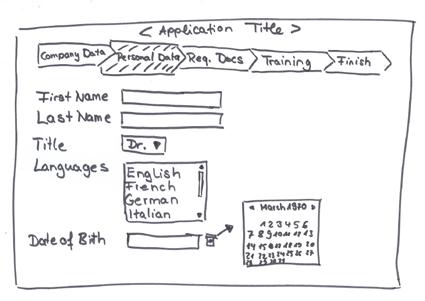 < Application Title >
Company Data Personal Data Req. Docs Training Finish
First Name
Last Name
Title Dr. ▼
Languages
English
French
German
Italian
Date of Bith
◂ March 1970 ▸
1 2 3 4 5 6
7 8 9 10 11 12 13
14 15 16 17 18 19 20
21 22 23 24 25 26 27
28 29 30 31